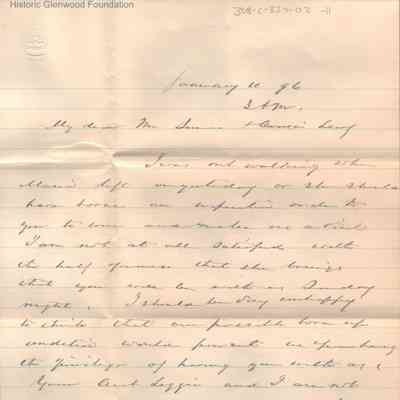 Historic Glenwood Foundation
January 10 96
My dear Mr & Cousin
I was out walking when
left yesterday or she should
have borne an imperative order to
you to come and make us a visit
I am not at all satisfied with
the half promise that she brings
that you will be with us Sunday
night. I should be very unhappy
to think that our possible torn up
condition would prevent us from having
the privilege of having you with us.
Your Aunt Lizzie and I are not